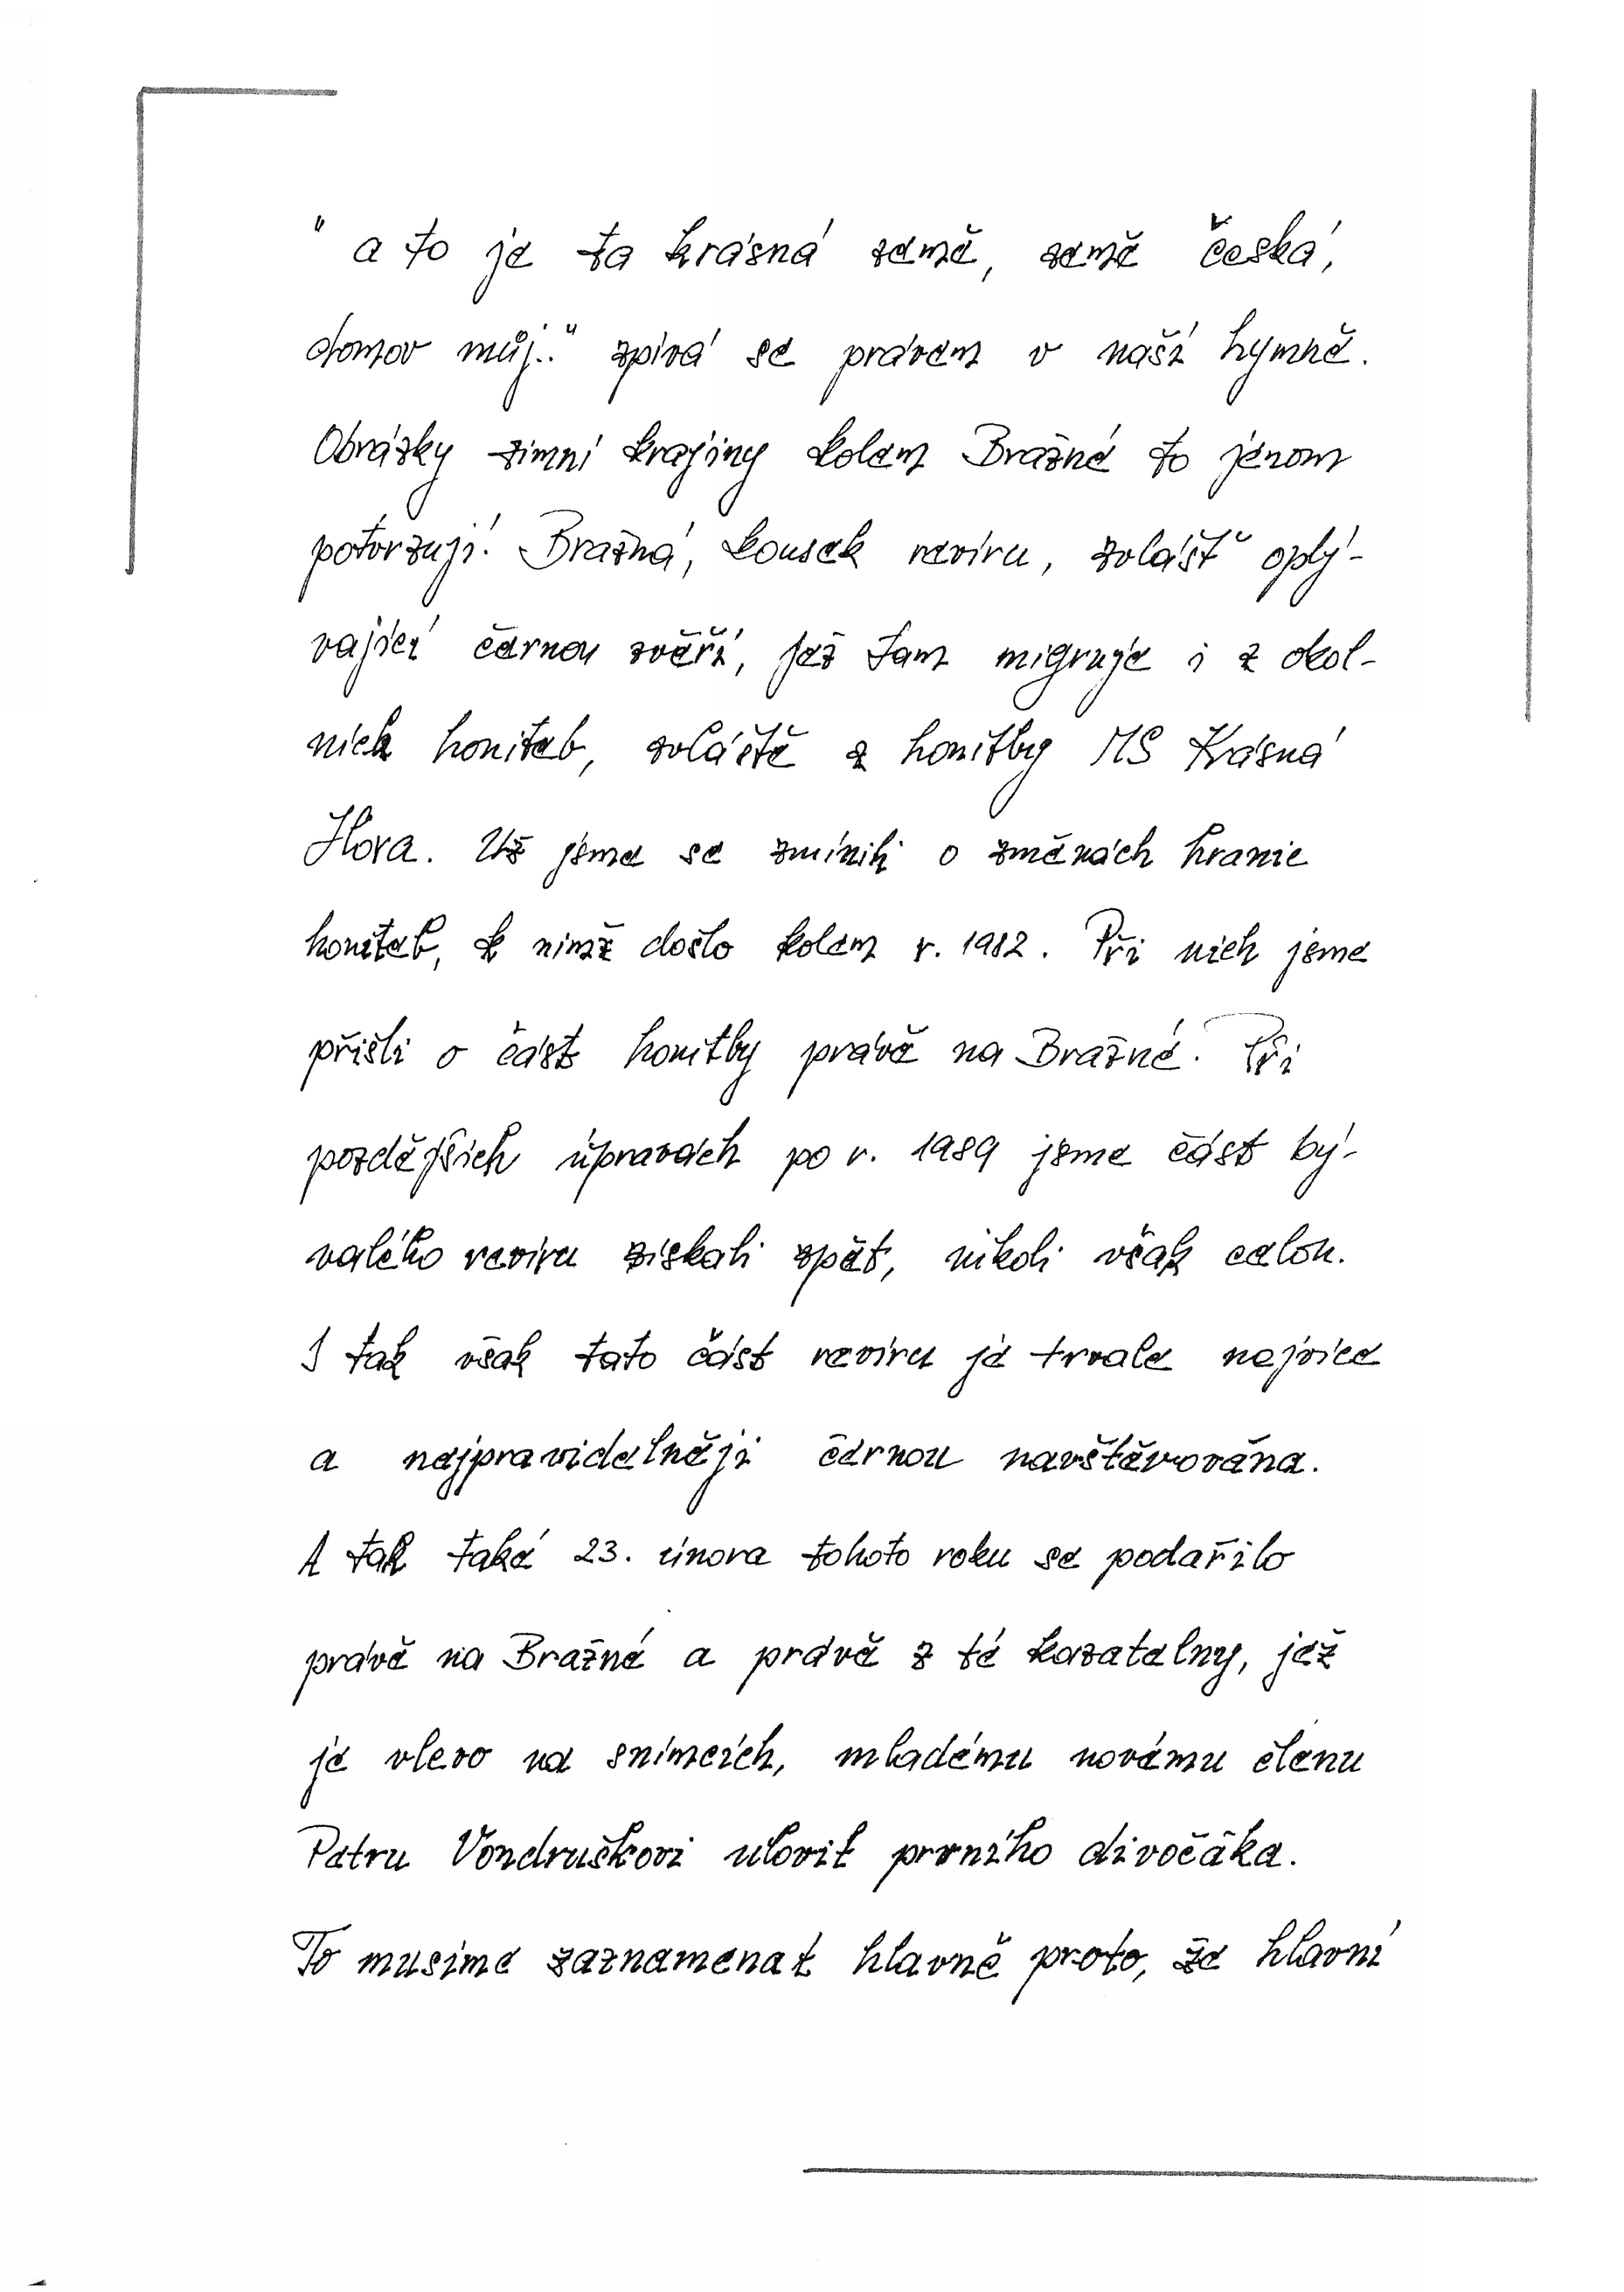 " a to je ta krásná země, země česká,
domov můj.." zpívá se právem v naší hymně.
Obrázky zimní krajiny kolem Brazné to jenom
potvrzují. Brazná, kousek revíru, zvlášť oplý-
vající černou zvěří, jež tam migruje i z okol-
ních honiteb, zvláště z honitby MS Krásná
Hora. Už jsme se zmínili o změnách hranic
honiteb, k nimž došlo kolem r. 1982. Při nich jsme
přišli o část honitby právě na Brazné. Při
pozdějších úpravách po r. 1989 jsme část bý-
valého revíru získali zpět, nikoli však celou.
I tak však tato část revíru je trvale nejvíce
a nejpravidelněji černou navštěvována.
A tak také 23. února tohoto roku se podařilo
právě na Brazné a právě z té kazatelny, jež
je vlevo na snímcích, mladému novému členu
Petru Vondruškovi ulovit prvního divočáka.
To musíme zaznamenat hlavně proto, že hlavní